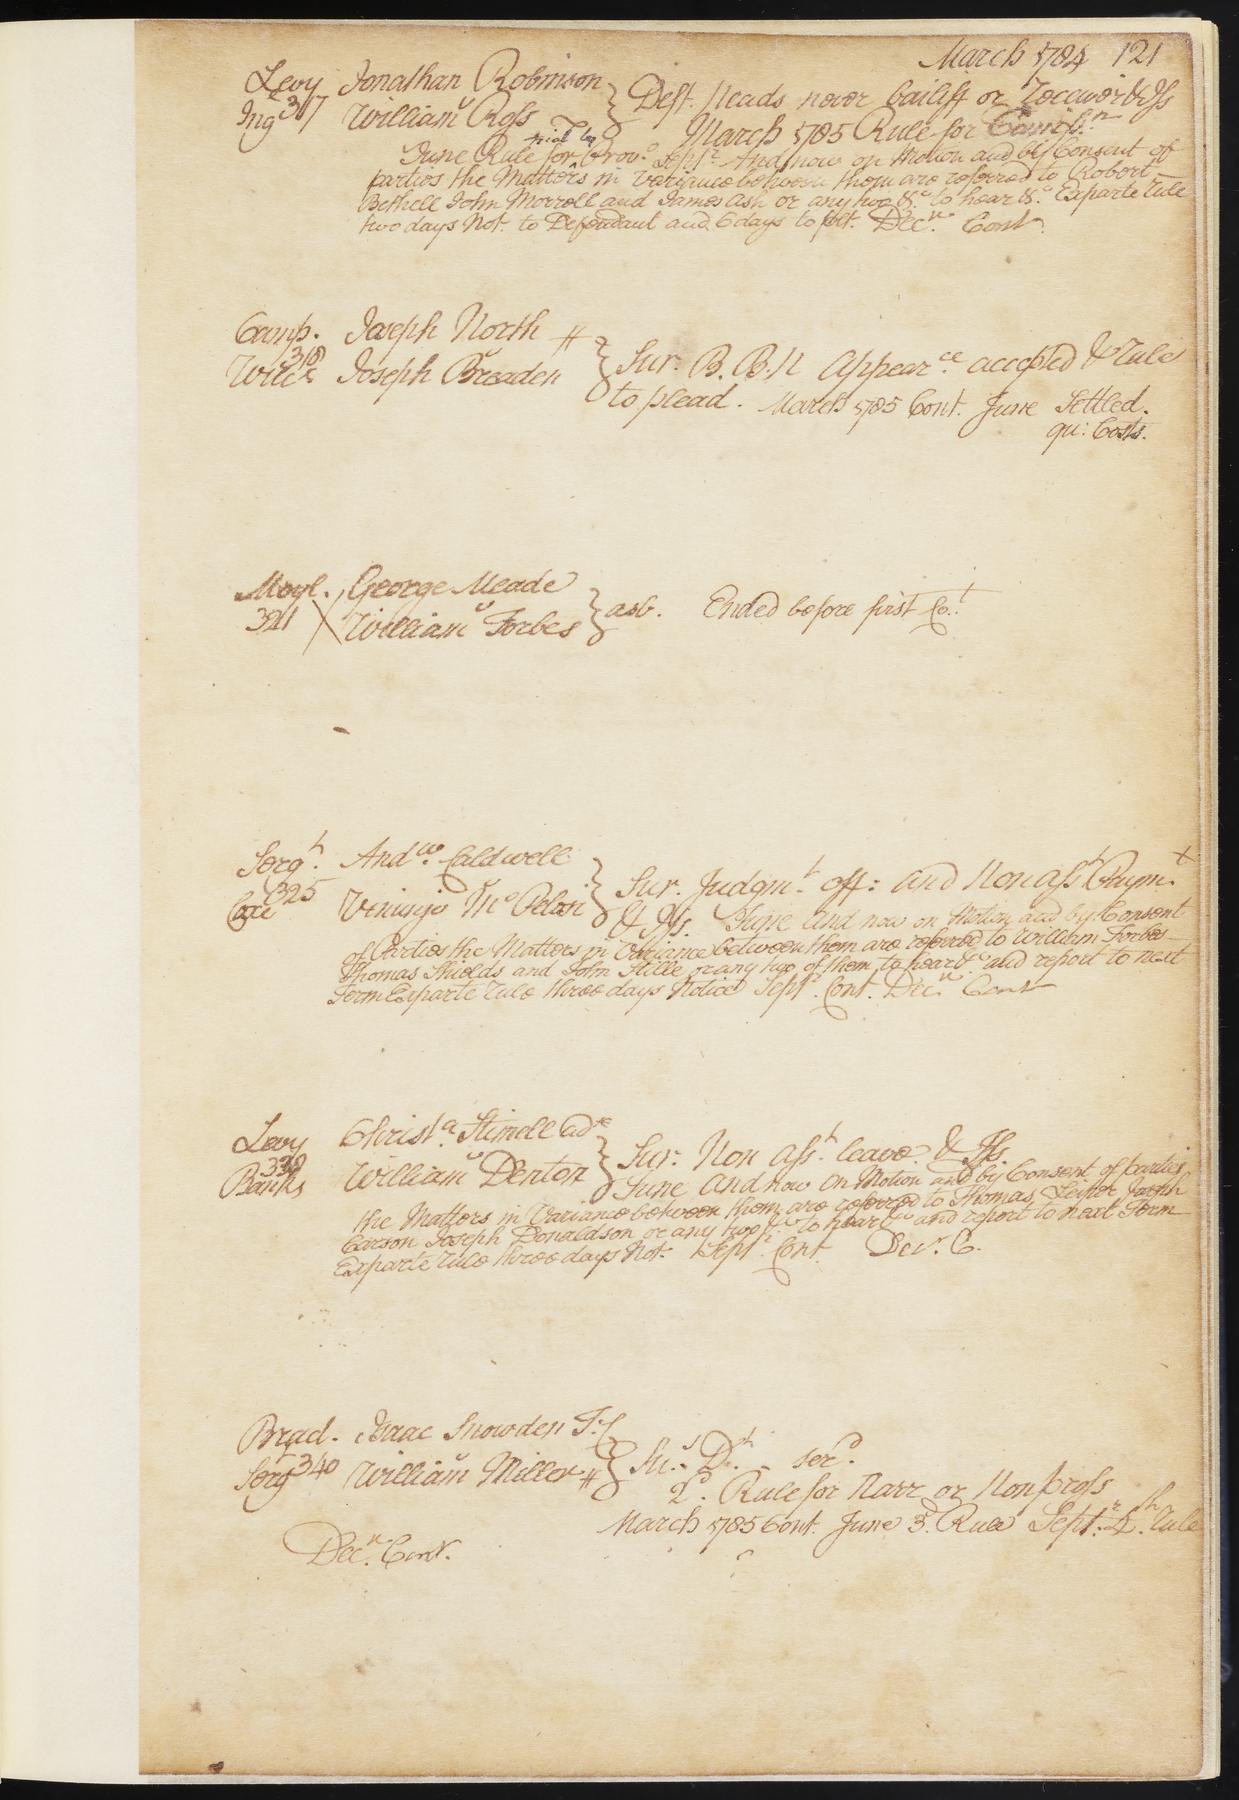 March 1784 121
Levy Jonathan Robinson
Ing 317 William Ross } Deft. pleads never bailiff or Receiver & Iss
March 1785 Rule for
trial by
June Rule for Prov.o Sept.r And now on Motion and by Consent of
parties the Matters in variance between them are referred to Robert
Bethell John Morrell and James Ash or any two &.c to hear &.c Exparte rule
two days Not. to Defendant and 6 days to plt. Dec.r Cont.
Camp. Joseph North #
Wilck 318 Joseph Breaden } Sur. B. B. N Appear.ce accepted & Rule
to plead. March 1785 Cont. June Settled.
qu: Costs.
Moyl. George Meade
321 X William Forbes } asb. Ended before first Co.t
Serg.t And.w Caldwell
Coxe 325 } Sur. Judgm.t off: and Non Ass.t Paym.t
& Iss. June And now on Motion and by Consent
of Parties the Matters in Variance between them are referred to William Forbes
Thomas Shields and John Stille or any two of them to hear &.c and report to next
Term Exparte rule three days Notice Sept.r Cont. Dec.r Cont
Levy Christ.r Stimell ad.r
Banks 338 William Denton } Sur. Non Ass.t leave & Iss.
June And now On Motion and by Consent of parties
the Matters in Variance between them are referred to Thomas Leiper Joseph
Carson Joseph Donaldson or any two &c to hear &c and report to next Term
Exparte rule three days Not. Sept.r Cont. Dec.r C.
Brad. Isaac Snowden T.r
Serg 340 William Miller # } Su.s D.t - ser.d
2.d Rule for Narr or Non pross
March 1785 Cont. June 3.d Rule Sept.r 4.th rule
Dec.r Cont.